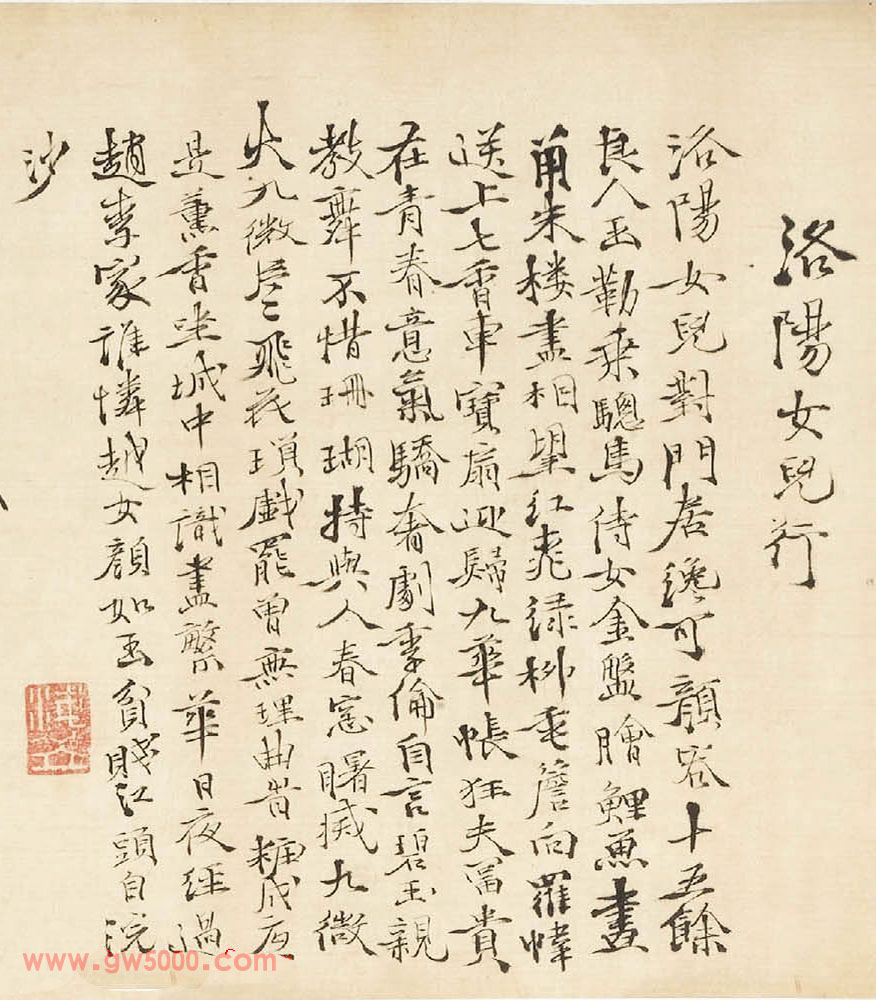 洛陽女兒行
洛陽女兒對門居纔可顏容十五餘
良人玉勒乘驄馬侍女金盤膾鯉魚畫
閣朱楼盡相望紅桃綠柳垂簷向羅幃
送上七香車寶扇迎歸九華帳狂夫富貴
在青春意氣驕奢劇季倫自言碧玉親
教舞不惜珊瑚持與人春窓曙滅九微
火九微片片飛花璅戯罷曾無理曲旹糚成衹
是薰香坐城中相識盡繁華日夜經過
趙李家誰憐越女顏如玉貧賤江頭自浣
沙
www.gw5000.com